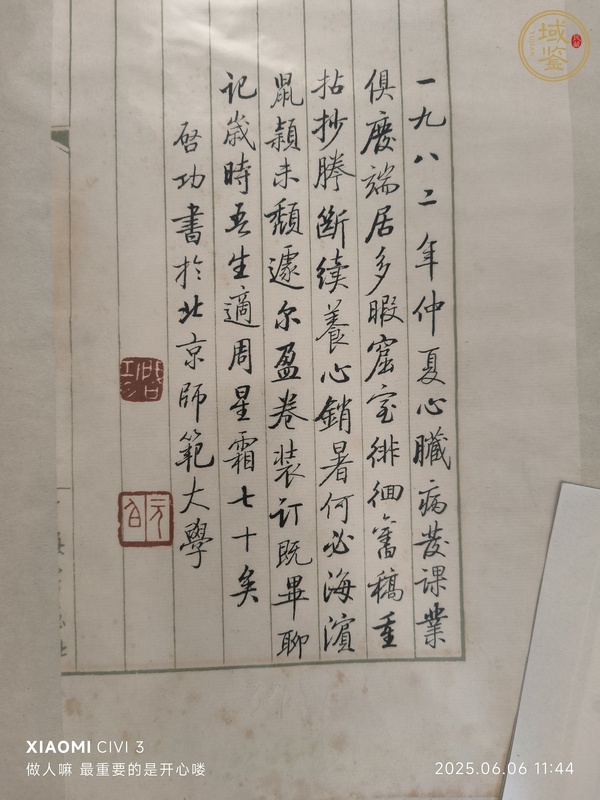 一九八二年仲夏心臟病發課業
俱廢端居多暇窟室徘徊舊稿重
拈抄謄斷續養心銷暑何必海濱
鼠穎未頹遽尔盈卷装订既畢聊
记歲時吾生適周星霜七十矣
啓功書於北京師範大學
啓功
元白
域鉴
XIAOMI CIVI 3
做人嘛 最重要的是开心喽
2025.06.06 11:44